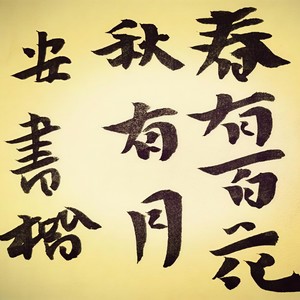 春有百花
秋有月
安書楷